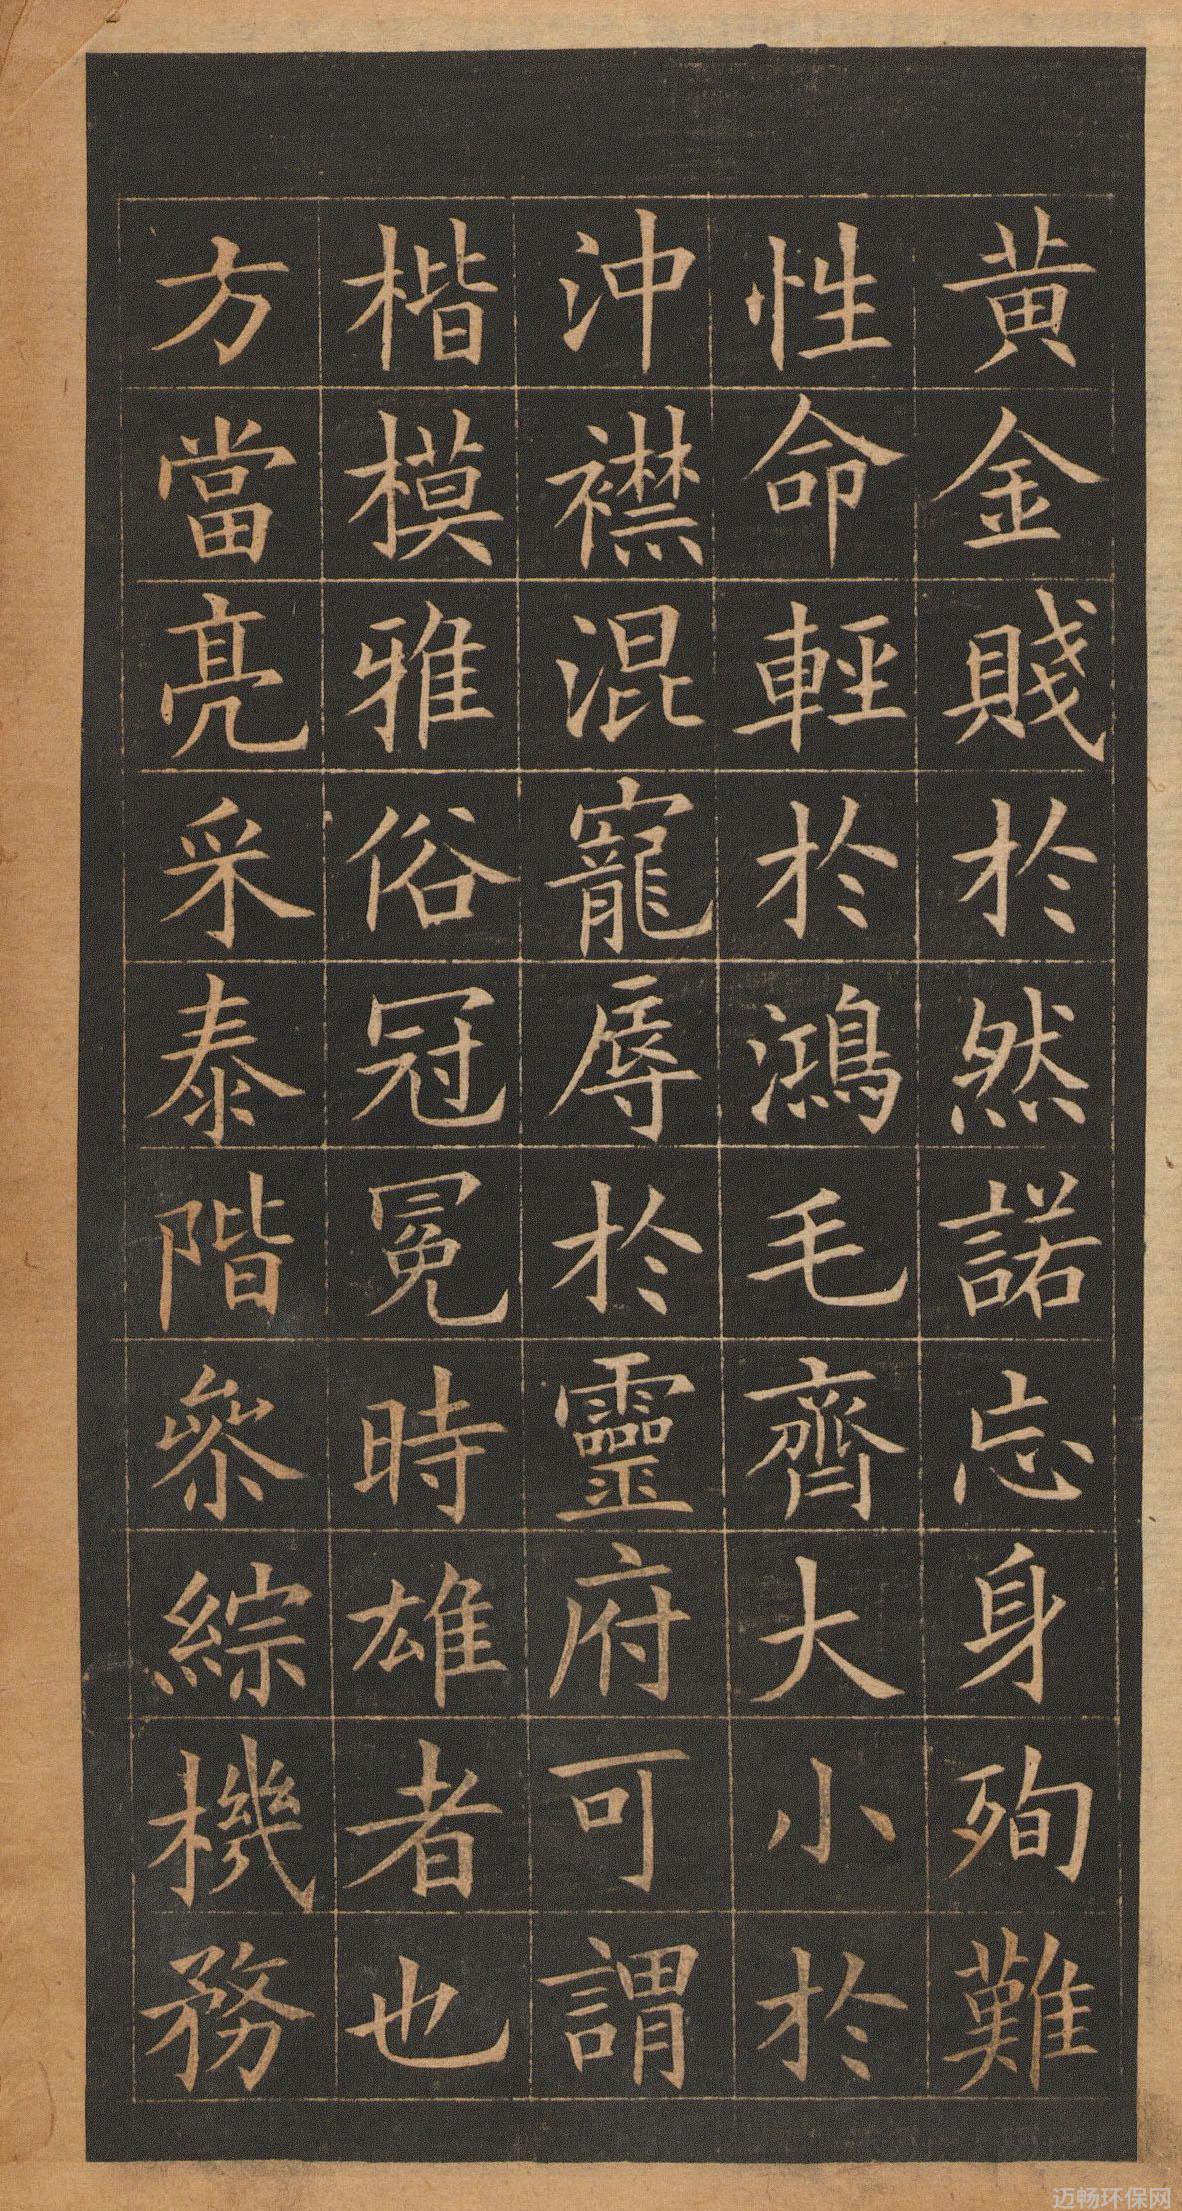 黄金賤於然諾忘身殉難
性命輕於鴻毛齊大小於
沖襟混寵辱於靈府可謂
楷模雅俗冠冕時雄者也
方當亮采泰階參綜機務
迈畅环保网